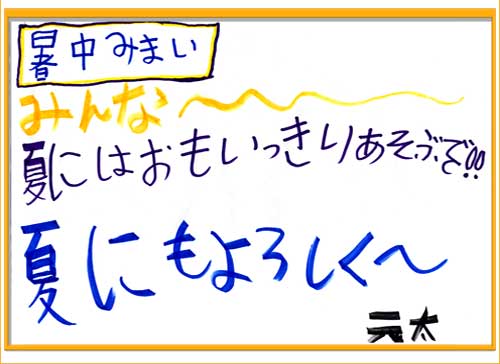 暑中みまい
みんな〜
夏にはおもいっきりあそぶぞ!!
夏にもよろしく〜
元太